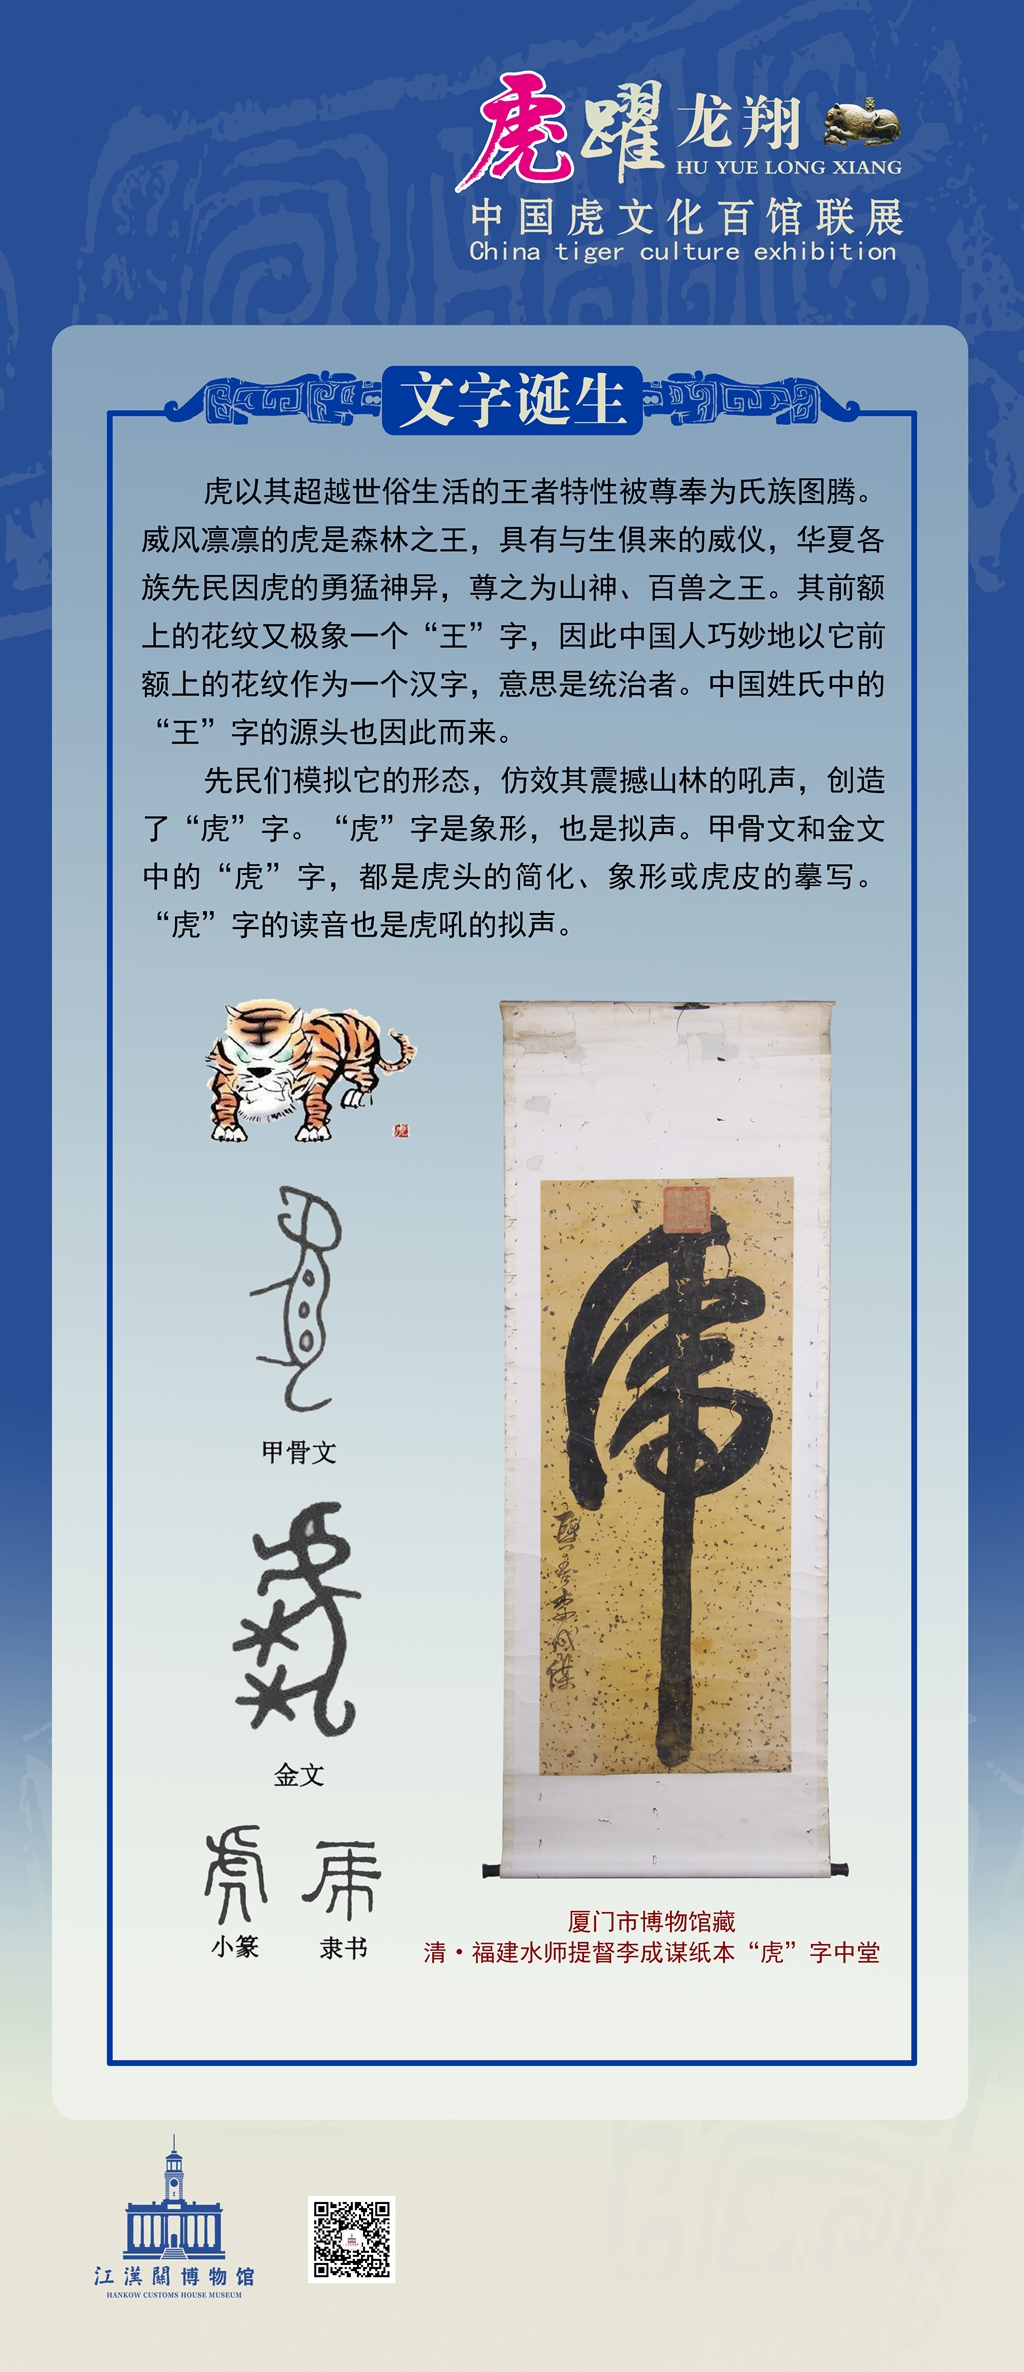 虎躍龙翔
HU YUE LONG XIANG
中国虎文化百馆联展
China tiger culture exhibition
文字诞生
虎以其超越世俗生活的王者特性被尊奉为氏族图腾。
威风凛凛的虎是森林之王，具有与生俱来的威仪，华夏各
族先民因虎的勇猛神异，尊之为山神、百兽之王。其前额
上的花纹又极象一个“王”字，因此中国人巧妙地以它前
额上的花纹作为一个汉字，意思是统治者。中国姓氏中的
“王”字的源头也因此而来。
先民们模拟它的形态，仿效其震撼山林的吼声，创造
了“虎”字。“虎”字是象形，也是拟声。甲骨文和金文
中的“虎”字，都是虎头的简化、象形或虎皮的摹写。
“虎”字的读音也是虎吼的拟声。
甲骨文
金文
虎
小篆
虎
隶书
虎
厦门市博物馆藏
清·福建水师提督李成谋纸本“虎”字中堂
江漢關博物馆
HANKOW CUSTOMS HOUSE MUSEUM